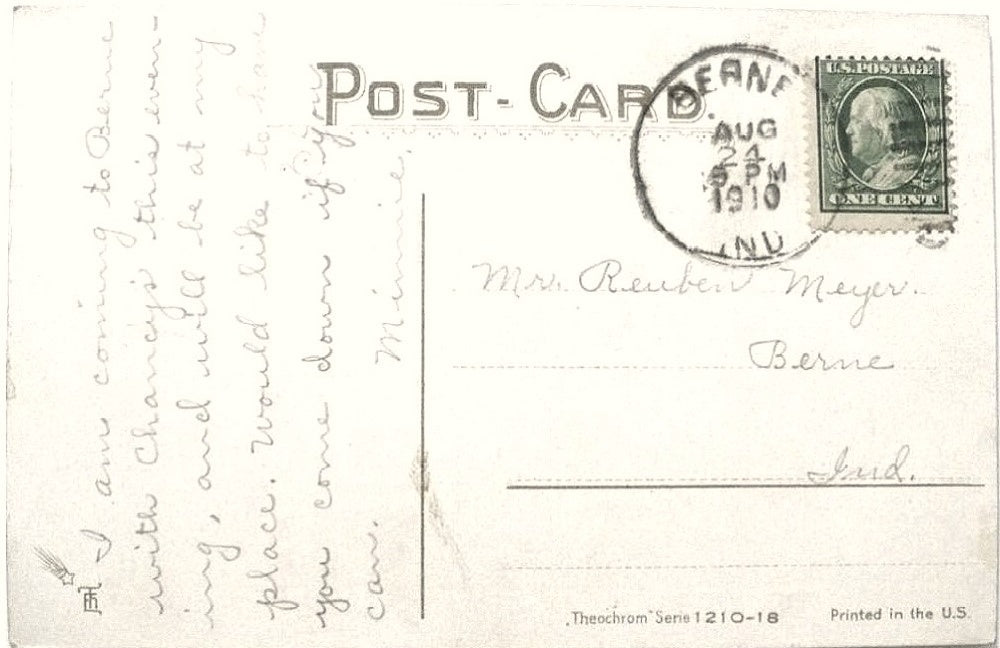 POST-CARD.
BERNE
AUG
24
5 PM
1910
IND
U.S. POSTAGE
ONE CENT
I am coming to Berne
with Chancy's this even-
ing, and will be at my
place. Would like to have
you come down if you
can.
Minnie.
Mr. Reuben Meyer.
Berne
Ind.
"Theochrom" Serie 1210-18
Printed in the U.S.